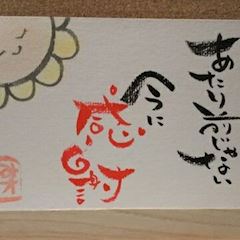 あたり前じゃない
今に
感謝